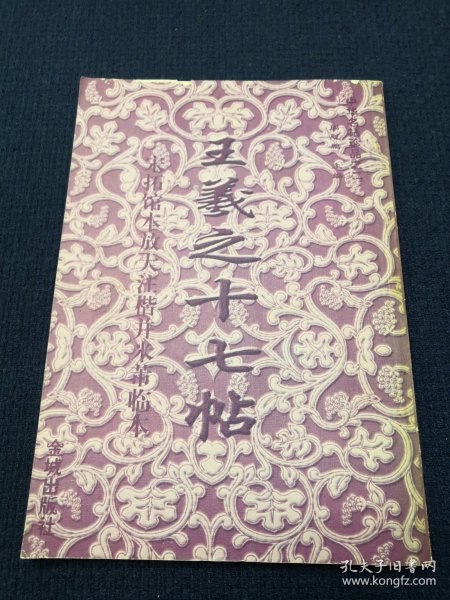 王羲之十七帖
宋拓馆本放大注楷并米芾临本
金城出版社
孔夫子旧书网
www.kongfz.com